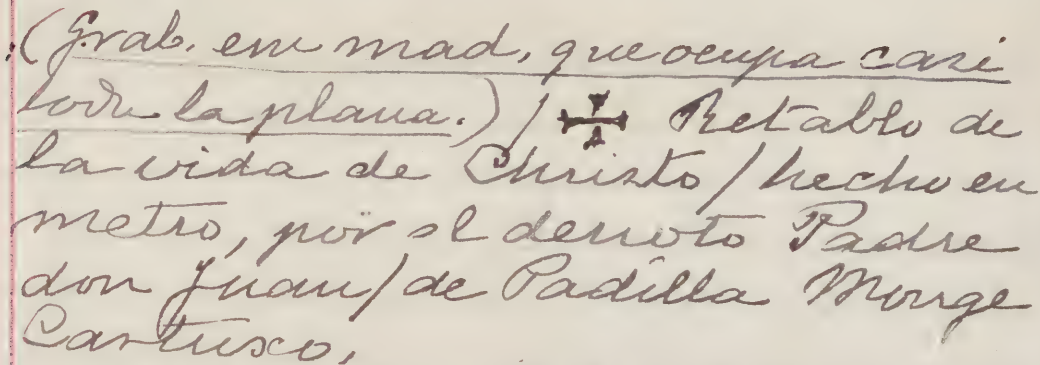 (Grab. en mad, que ocupa casi
toda la plana.) / ✠ Retablo de
la vida de Christo / hecho en
metro, por el devoto Padre
don Juan / de Padilla Monge
Cartuxo,